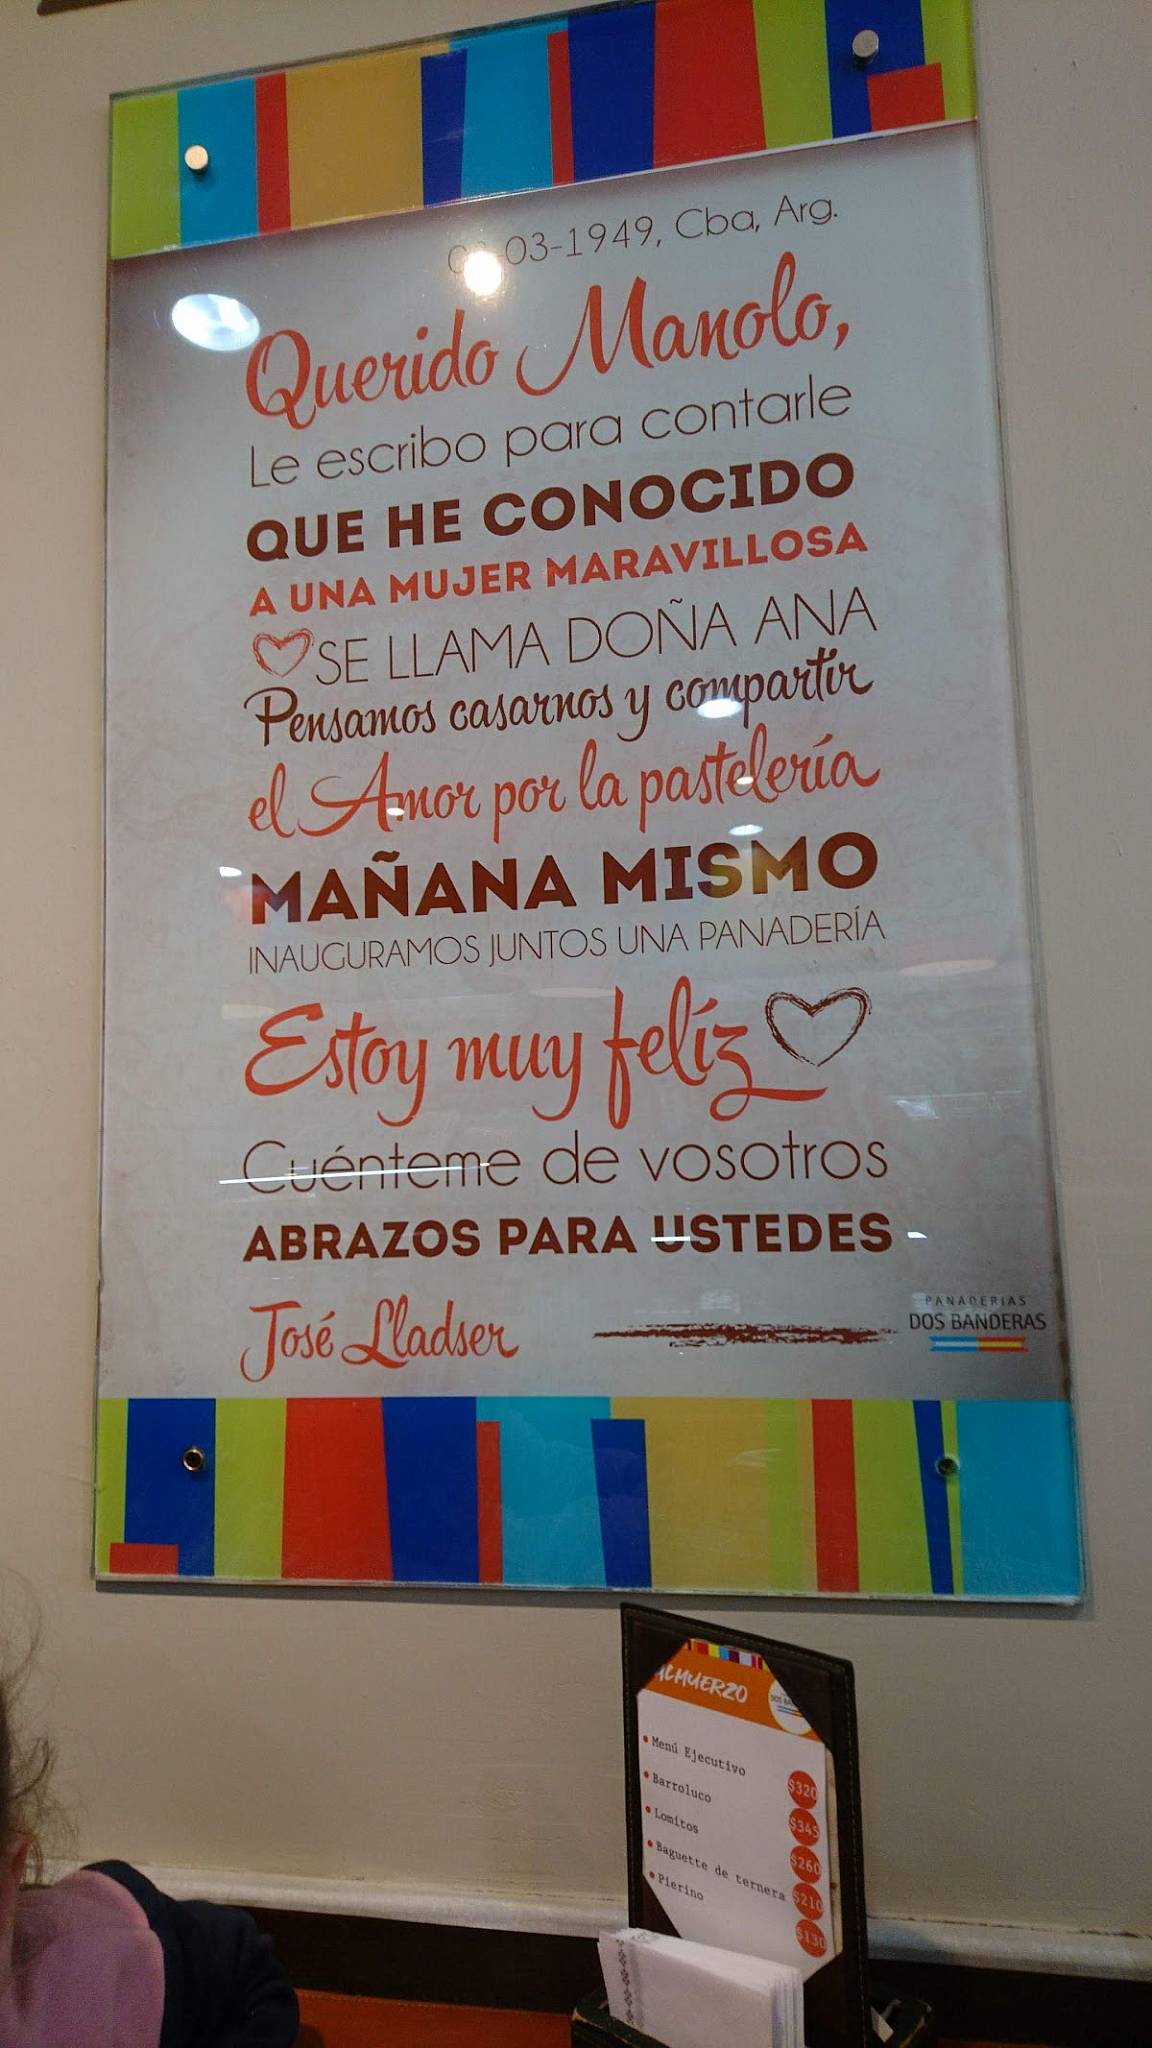 03-1949, Cba, Arg.
Querido Manolo,
Le escribo para contarle
QUE HE CONOCIDO
A UNA MUJER MARAVILLOSA
SE LLAMA DOÑA ANA
Pensamos casarnos y compartir
el Amor por la pastelería
MAÑANA MISMO
INAUGURAMOS JUNTOS UNA PANADERÍA
Estoy muy felíz
Cuénteme de vosotros
ABRAZOS PARA USTEDES
José Lladser
PANADERIAS
DOS BANDERAS
ALMUERZO
Menú Ejecutivo $320
Barroluco $345
Lomitos $260
Baguette de ternera $210
Pierino $130